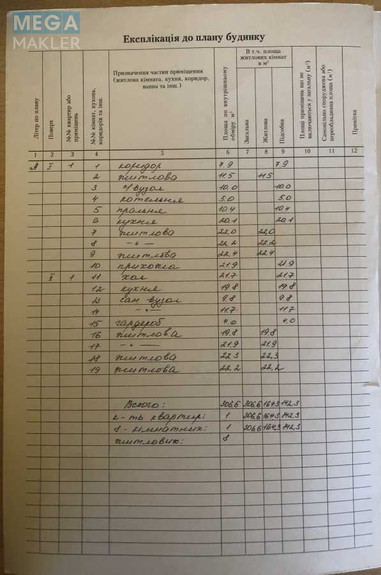 MEGA
MAKLER
Експлікація до плану будинку
Літер по плану
Поверх
№№ квартир або приміщень
№№ кімнат, кухонь, коридорів та інш.
Призначення частин приміщення
(житлова кімната, кухня, коридор,
ванна та інш.)
Площа по внутрішньому обміру м²
В т.ч. площа
житлових кімнат
в м²
Загальна
Житлова
Підсобна
Площі приміщень що не включаються у загальну (м²)
Самовільно споруджена або переобладнана площа (м²)
Примітка
1 2 3 4 5 6 7 8 9 10 11 12
А I 1 1 коридор 7.9 7.9
2 житлова 11.5 11.5
3 с/вузол 10.0 10.0
4 котельня 5.0 5.0
5 пральня 10.4 10.4
6 кухня 20.1 20.1
7 житлова 22.0 22.0
8 -"- 22.2 22.2
9 житлова 22.4 22.4
10 прихожа 21.9 21.9
1 11 хол 21.7 21.7
12 кухня 19.8 19.8
13 сан вузол 9.8 9.8
14 -"- 11.7 11.7
15 гардероб 4.0 4.0
16 житлова 19.8 19.8
17 -"- 21.9 21.9
18 житлова 22.3 22.3
19 житлова 22.2 22.2
Всього: 306,6 306,6 164.3 142.3
к-ть квартир: 1 306,6 164.3 142.3
8 - кімнатних: 1 306,6 164.3 142.3
житлових: 8